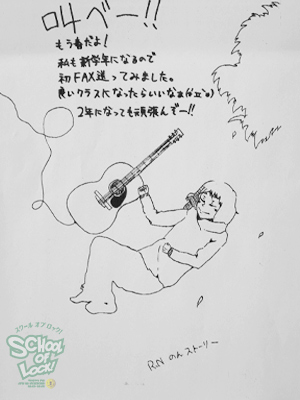 叫べー!!
もう春だよ!
私も新学年になるので
初FAX送ってみました。
良いクラスになったらいいなぁ(*´Д`*)
2年になっても頑張んぞー!!
RN のんストーリー
スクール オブ ロック!
SCHOOL
OF
LOCK!